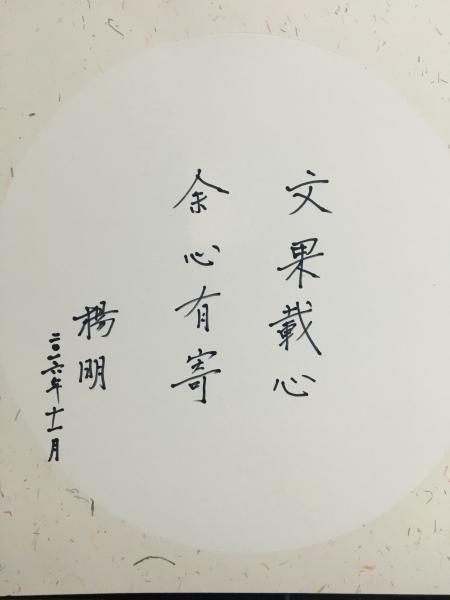 文果載心
余心有寄
楊明
二〇一六年十一月